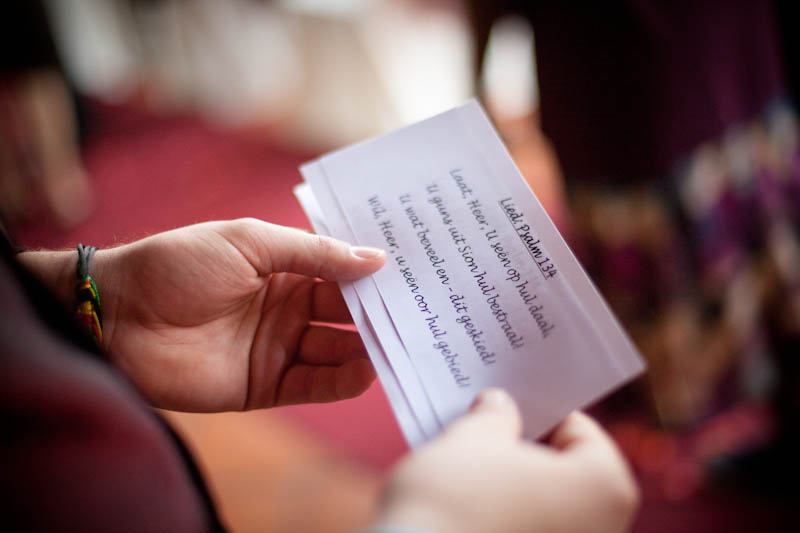 Lied: Psalm 134
Laat, Heer, U seën op hul daal,
U guns uit Sion hul bestraal!
U wat beveel en - dit geskied!
Wil, Heer, u seën oor hul gebied!